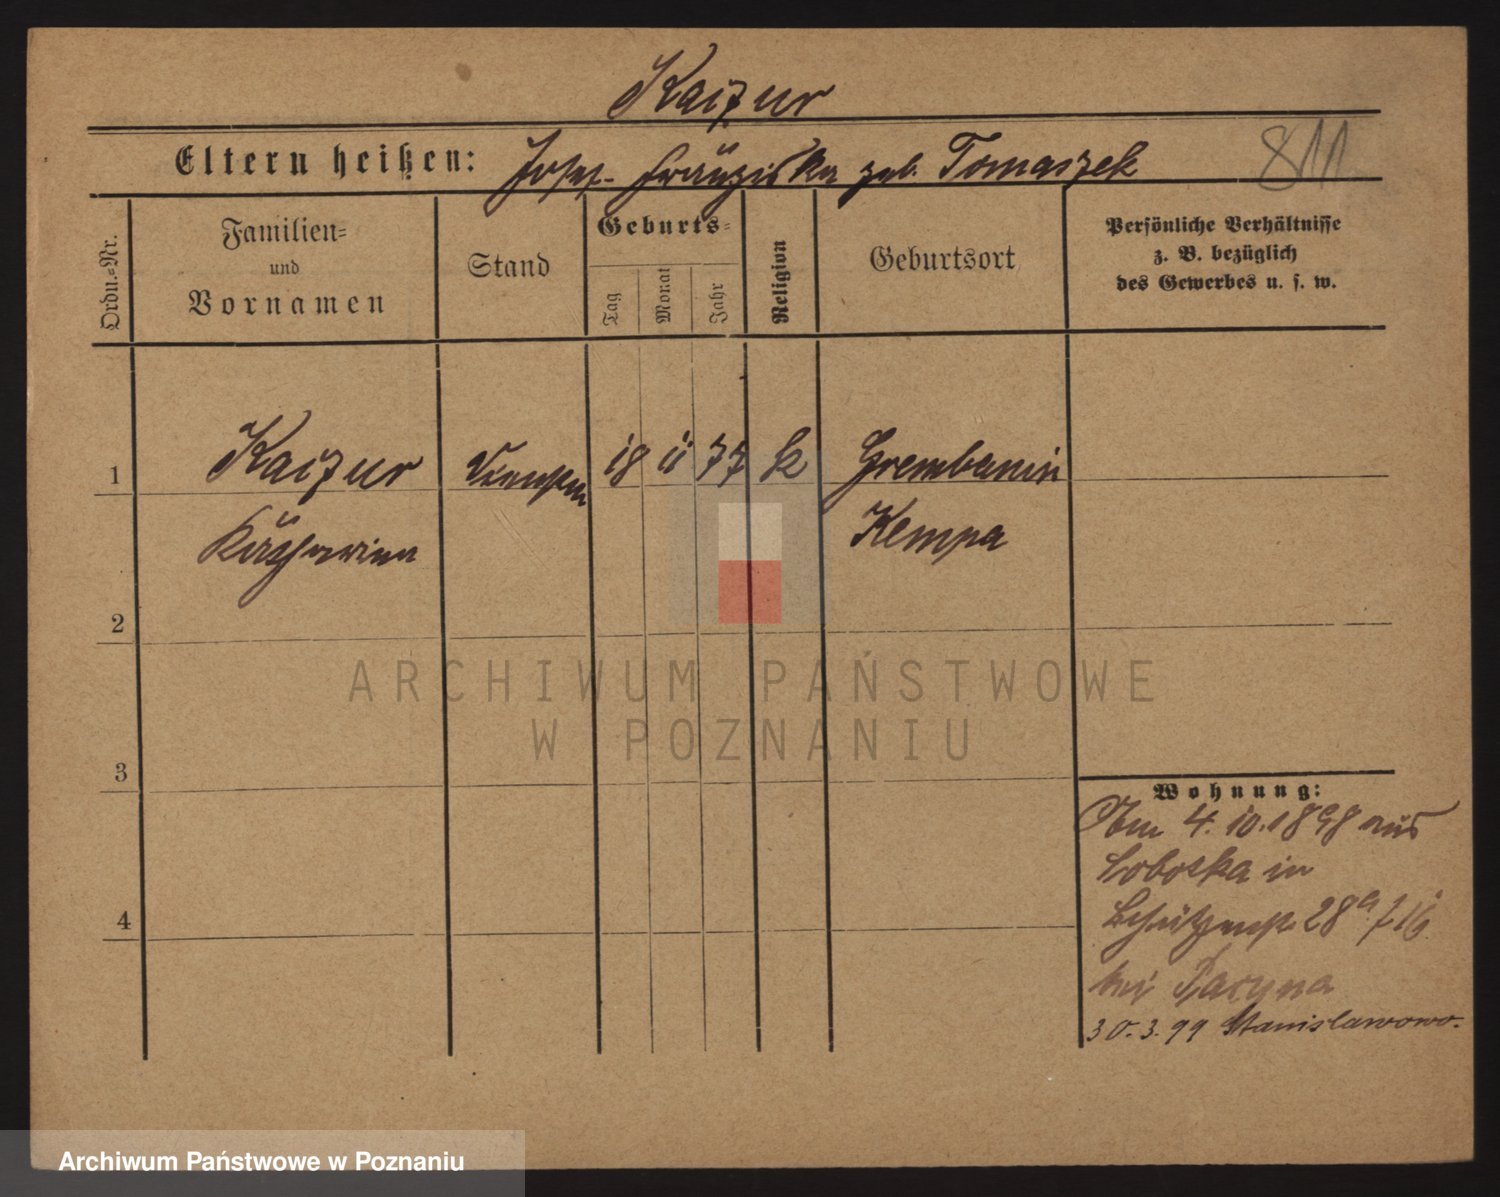 Kaizur
Eltern heißen: Josef - Franziska geb. Tomaszek
811
Ordn.-Nr.
Familien- und Vornamen
Stand
Geburts-
Tag
Monat
Jahr
Religion
Geburtsort
Persönliche Verhältnisse
z. B. bezüglich
des Gewerbes u. s. w.
1
Kaizur
18 11 77 k
Grembanin
Katharina
Kempa
2
3
4
Wohnung:
4. 10. 1898 aus
in
28a
bei
30. 3. 99 Stanislawowo.
ARCHIWUM PAŃSTWOWE
W POZNANIU
Archiwum Państwowe w Poznaniu